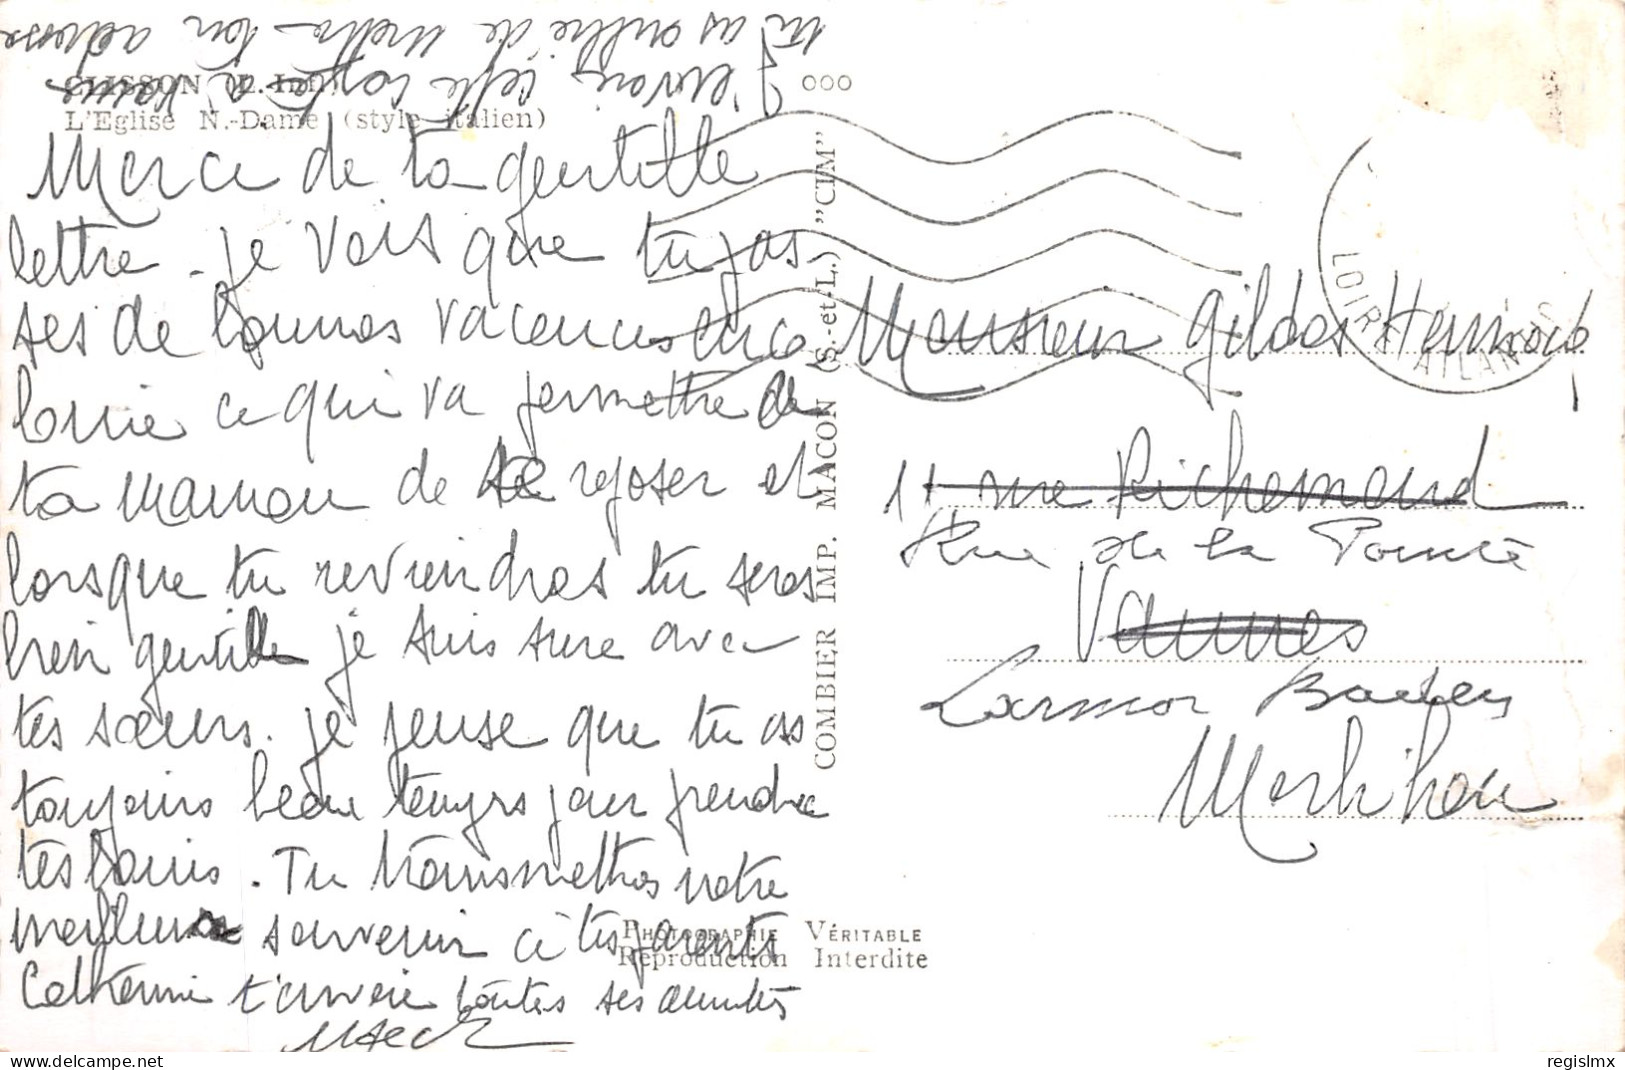 tu as oublié de mettre ton adresse
J'envoie cette carte à Vannes
CLISSON (L.-Inf.)
L'Eglise N.-Dame (style italien)
Merci de ta gentille
lettre. je vois que tu pas
ses de bonnes vacances en ca
ce qui va permettre à
ta maman de se reposer et
lorsque tu reviendras tu seras
bien gentille je suis sure avec
tes sœurs. je pense que tu as
toujours beau temps pour prendre
tes bains. Tu transmettras notre
meilleur souvenir à tes parents
Catherine t'envoie toutes ses amitiés
000
COMBIER IMP. MACON (S.-et-L.) "CIM"
PHOTOGRAPHIE VÉRITABLE
Reproduction Interdite
LOIRE ATLANTIQUE
Monsieur Gildas
11 rue Richemond
Rue de la Pointe
Vannes
Larmor Baden
Morbihan
regislmx
delcampe.net